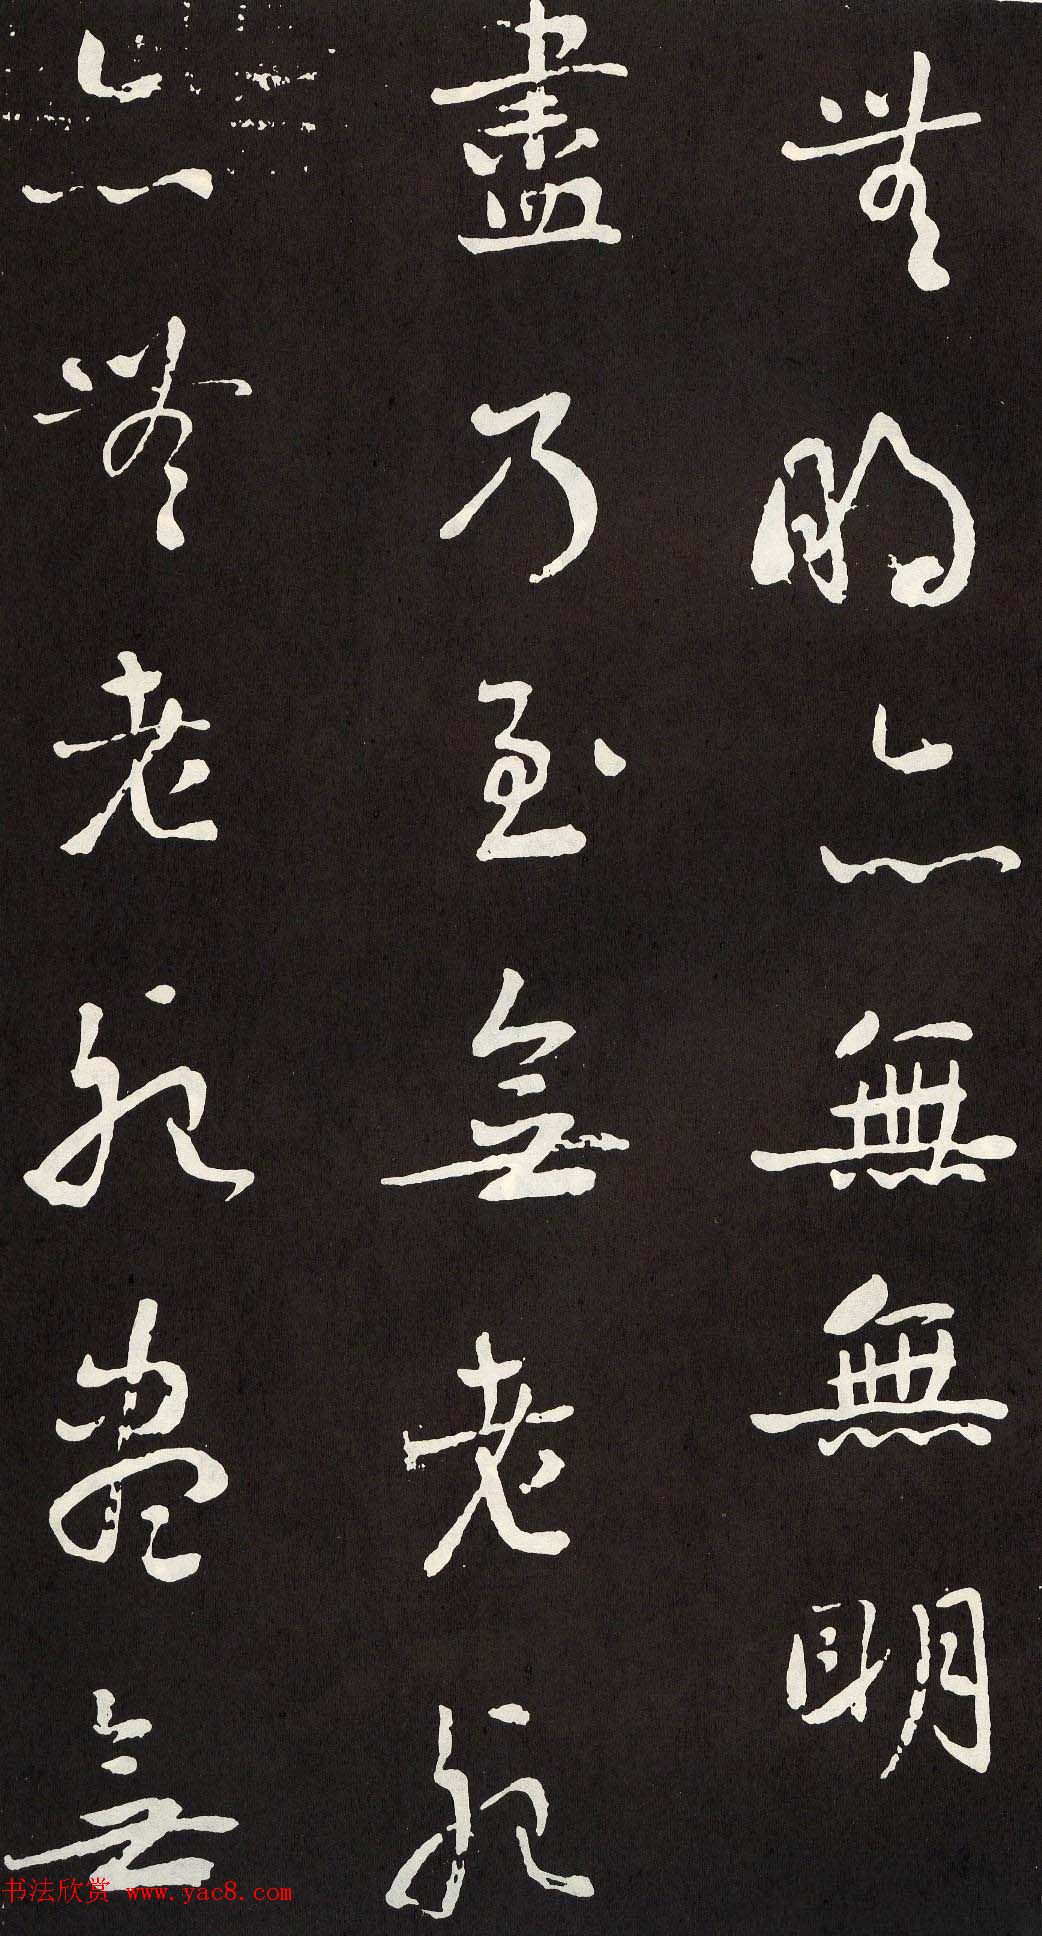 無明亦無無明
盡乃至無老死
亦無老死盡無
书法欣赏 www.yac8.com